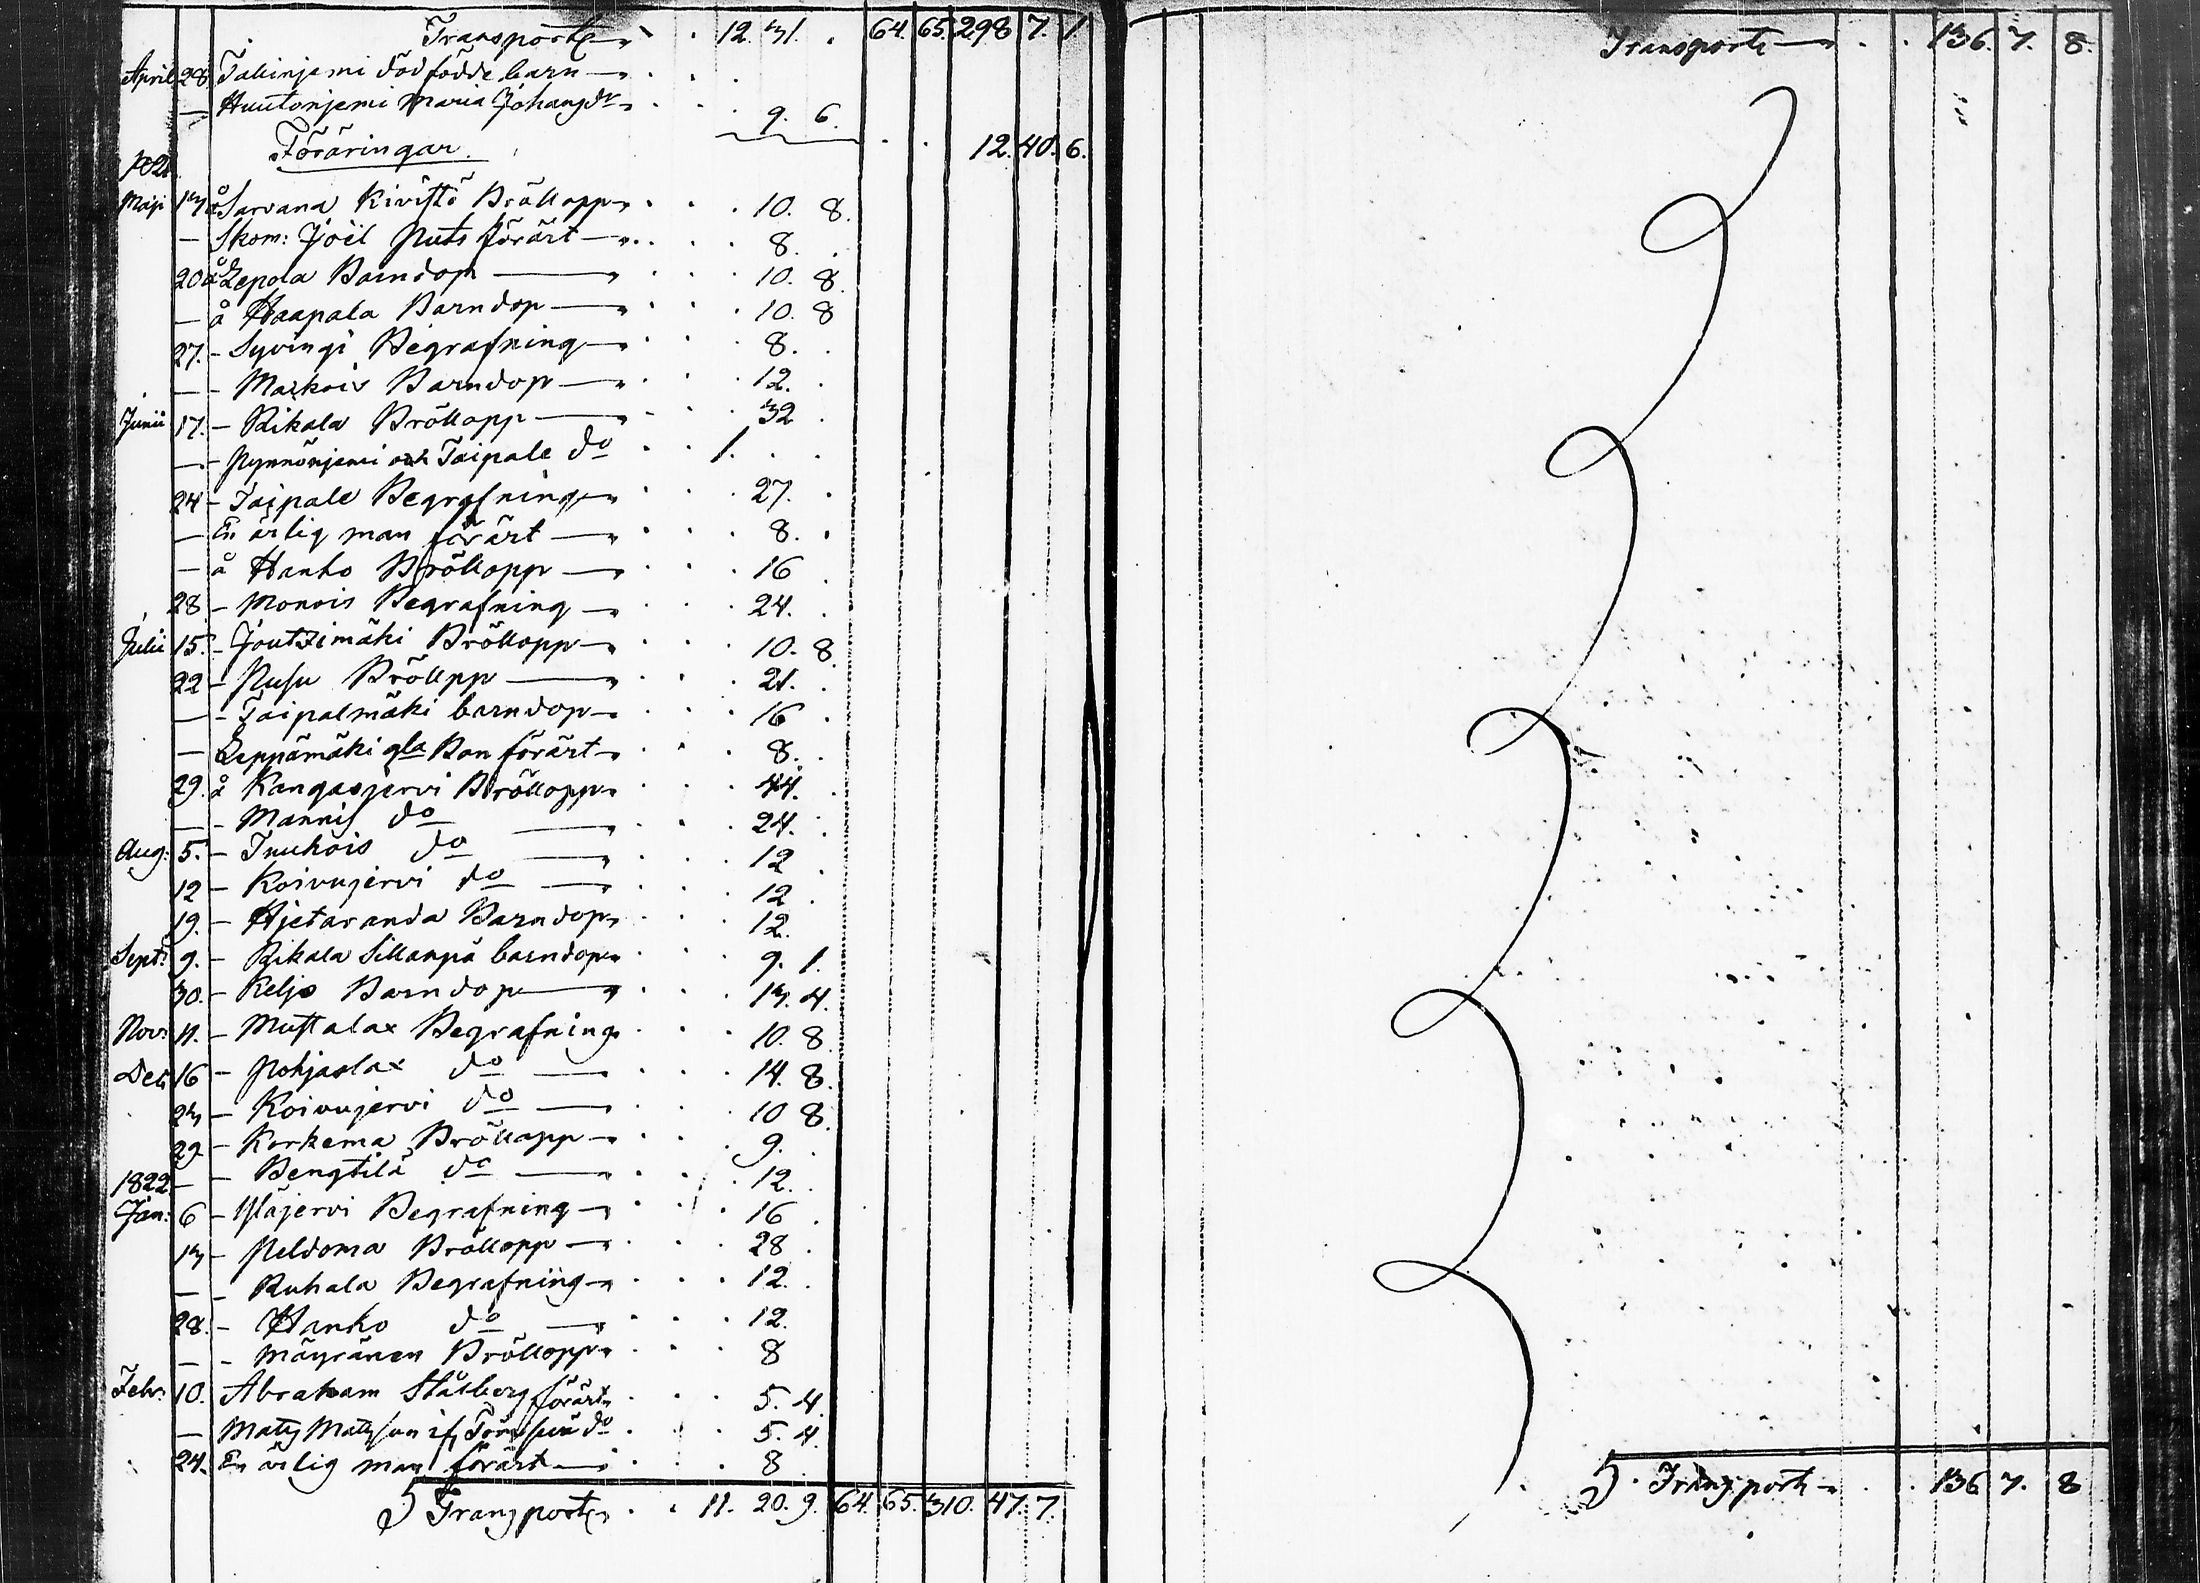 Transport 12. 31. 64. 65. 298 7. 1
April 28 Takinjemi dödfödde barn
— Huutonjemi Maria Johansdr 9. 6.
Föräringar 12. 40. 6.
1821
Maji 13 å Sarvana Kivistö Bröllopp 10. 8.
— Skom: Joël Puts förärt 8.
20 å Lepola Barndop 10. 8.
— å Haapala Barndop 10. 8
27. - Syvingi Begrafning 8.
— - Markois Barndop 12.
Junii 17. - Rikala Bröllopp 32
— - Pynnönjemi och Taipale do 1.
24 - Taipale Begrafning 27.
— En ärlig man förärt 8.
— å Hanko Bröllopp 16
28 - Monois Begrafning 24.
Julii 15. - Joutzimäki Bröllopp 10. 8.
22 - Pusu Bröllpp 21.
— - Taipalmäki barndop 16
— Leppämäki gla Bon förärt 8.
29. å Kangasjervi Bröllopp 44.
— - Mannis do 24.
Aug: 5. - Inuhois do 12
12 - Koivujervi do 12
19. - Hietaranda Barndop 12.
Sept: 9. - Rikala Sillanpä barndop 9. 1.
30. - Keljo Barndop 13. 4.
Nov: 11. - Mustalax Begrafning 10. 8
Dec: 16 - Pohjaslax do 14. 8.
23 - Koivujervi do 10 8.
29 - Korkema Bröllopp 9.
— - Bengtilä do 12.
1822
Jan: 6 - Yläjervi Begrafning 16
13 - Peldoma Bröllopp 28
— - Ruhala Begrafning 12.
28. - Hanko do 12.
— - Mäyränen Bröllopp 8
Febr: 10. Abraham Stålberg förärt 5. 4.
— Mats Matsson if do 5. 4.
24. En ärlig man förärt 8
Transport 11. 20. 9. 64. 65. 310. 47. 7.
Transport 136. 7. 8.
Transport 136 7. 8